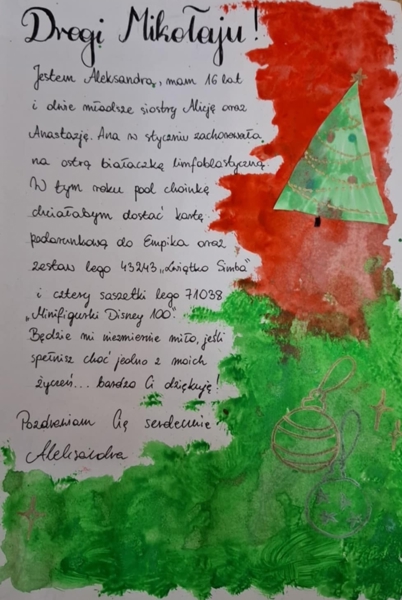 Drogi Mikołaju!
Jestem Aleksandra, mam 16 lat
i dwie młodsze siostry Alicję oraz
Anastazję. Ana w styczniu zachorowała
na ostrą białaczkę limfoblastyczną.
W tym roku pod choinkę
chciałabym dostać kartę
podarunkową do Empika oraz
zestaw lego 43243 „Lwiątko Simba"
i cztery saszetki lego 71038
„Minifigurki Disney 100".
Będzie mi niezmiernie miło, jeśli
spełnisz choć jedno z moich
życzeń... bardzo Ci dziękuję!
Pozdrawiam Cię serdecznie
Aleksandra